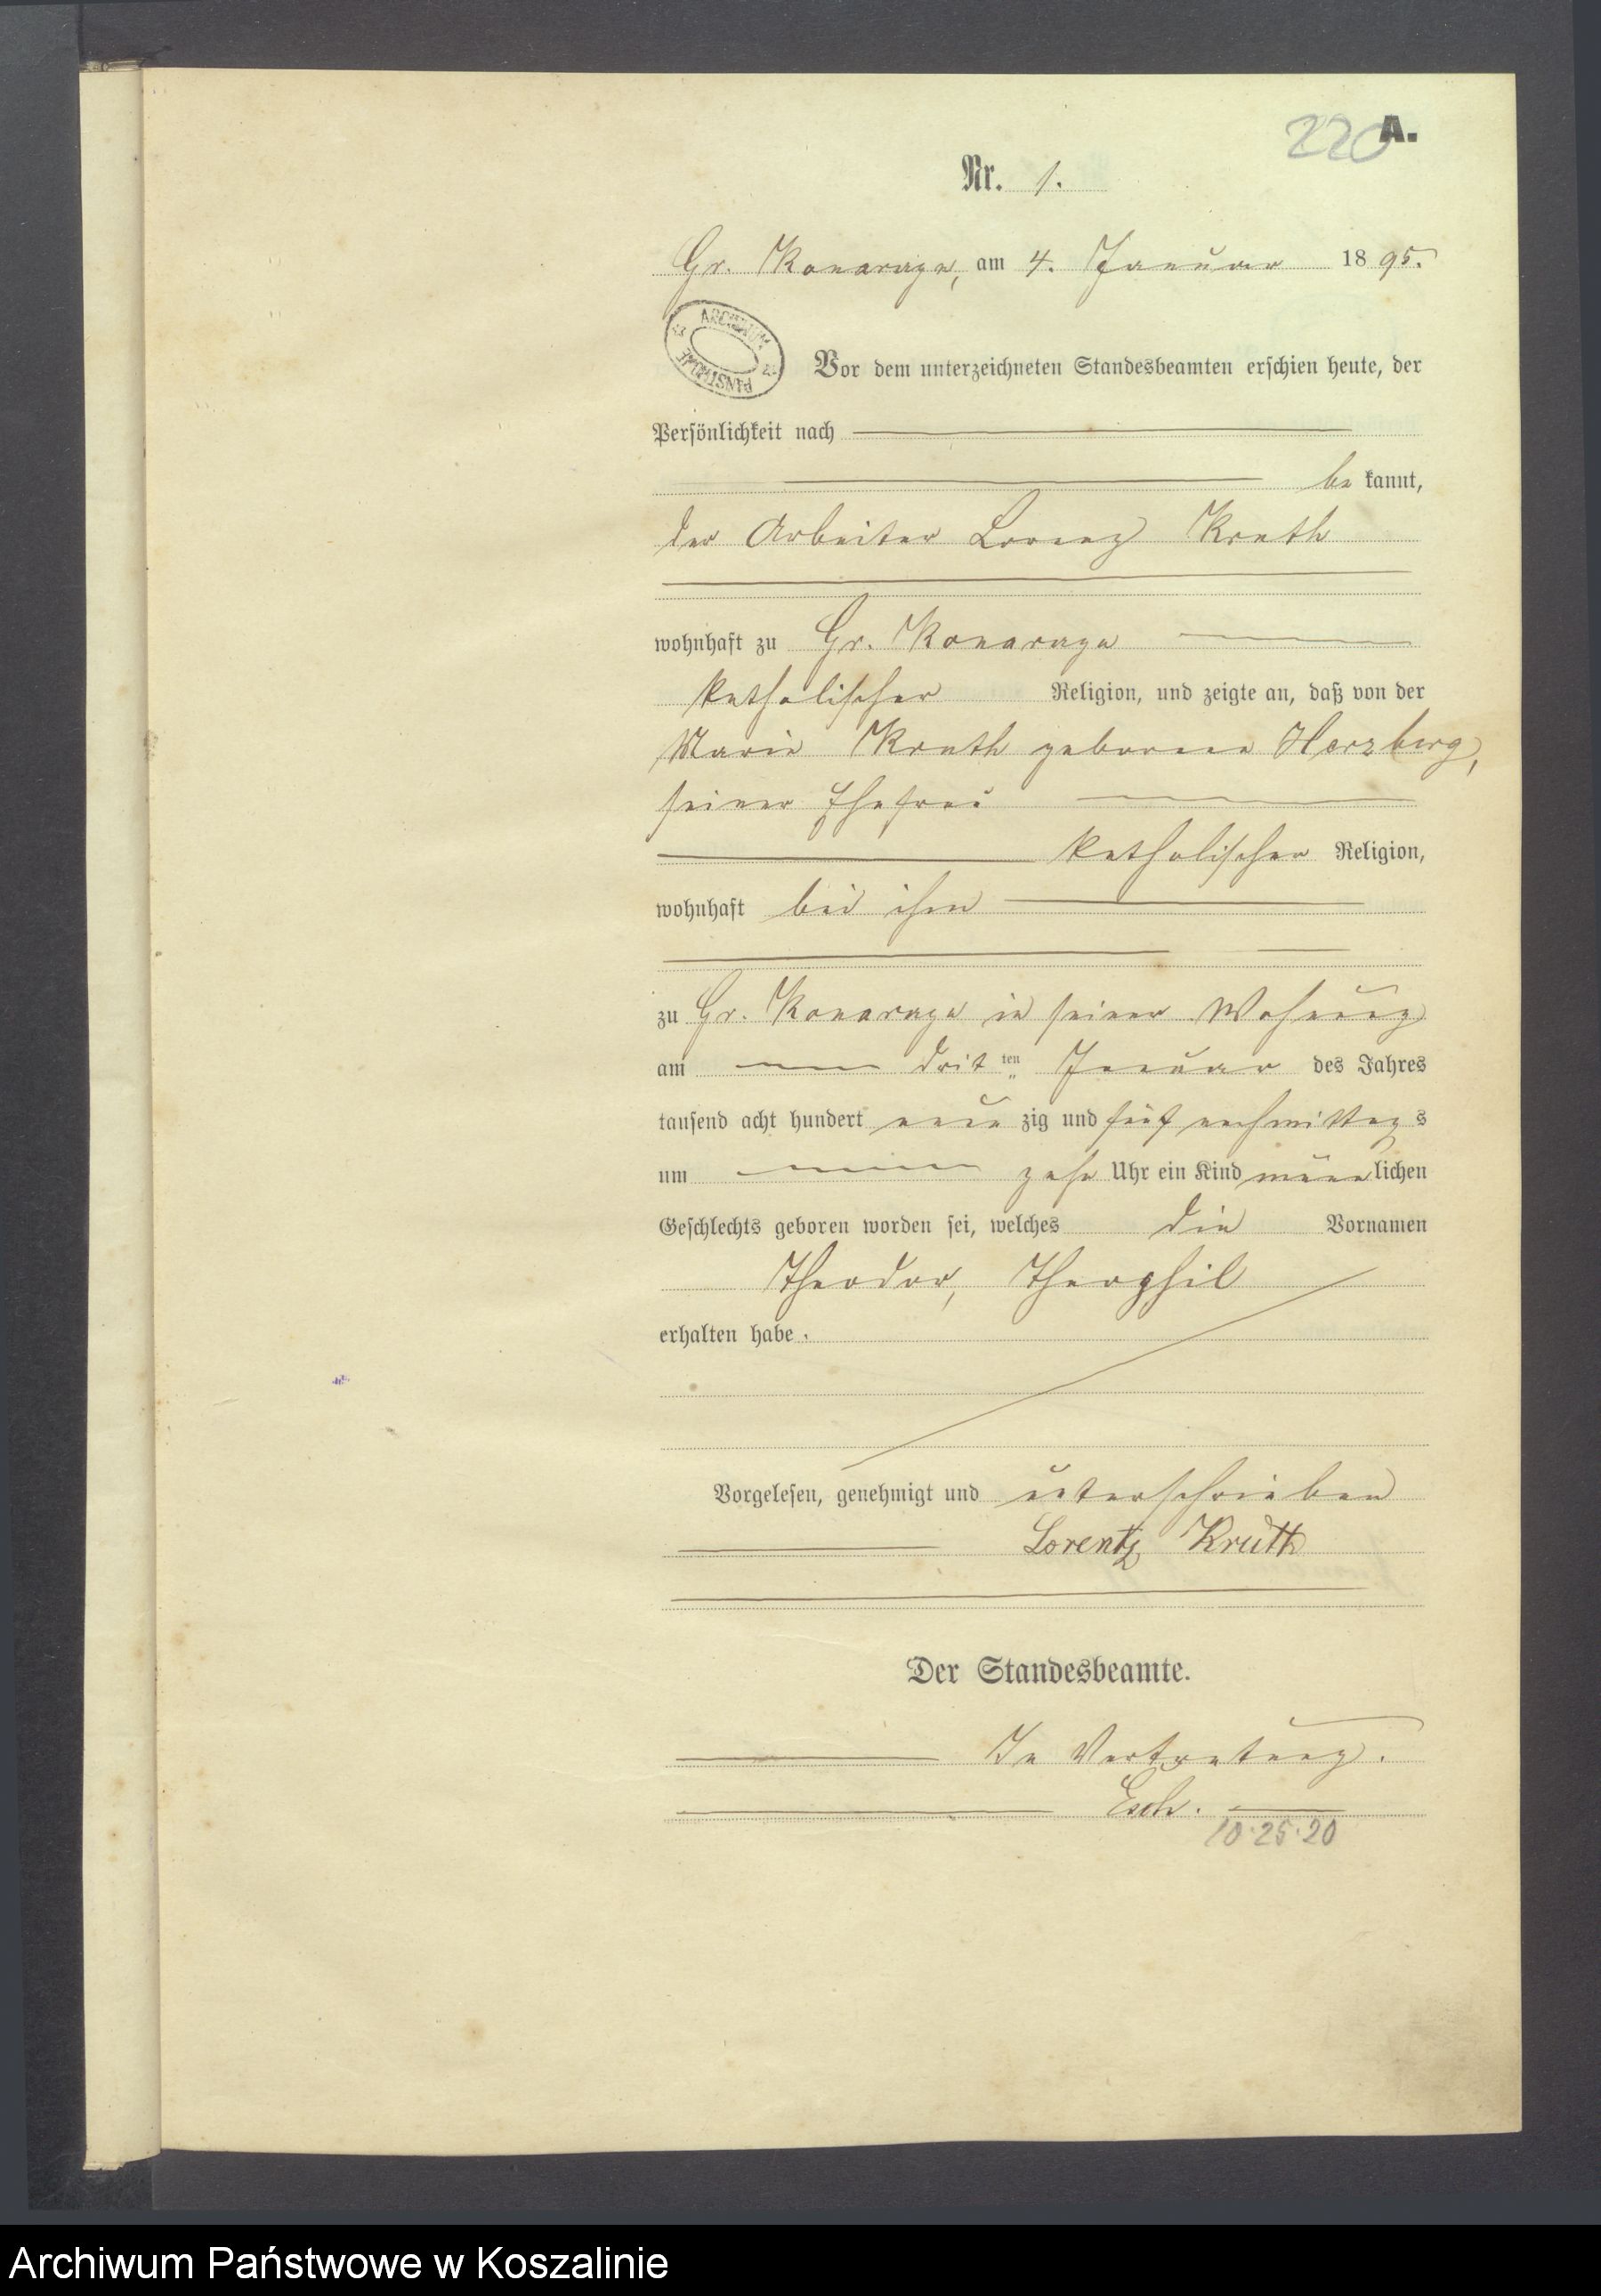 220 A.
Nr. 1.
Gr. Konarczyn, am 4. Januar 1895.
ARCHIWUM
PAŃSTWOWE
Vor dem unterzeichneten Standesbeamten erschien heute, der
Persönlichkeit nach
be kannt,
der Arbeiter Lorenz Kruth
wohnhaft zu Gr. Konarczyn
katholischer Religion, und zeigte an, daß von der
Marie Kruth geborene Herzberg,
seiner Ehefrau
katholischer Religion,
wohnhaft bei ihm
zu Gr. Konarczyn in seiner Wohnung
am drit ten Januar des Jahres
tausend acht hundert neun zig und fünf nachmittag s
um zehn Uhr ein Kind männlichen
Geschlechts geboren worden sei, welches die Vornamen
Theodor, Theophil
erhalten habe.
Vorgelesen, genehmigt und unterschrieben
Lorentz Kruth
Der Standesbeamte.
In Vertretung.
10.25.20
Archiwum Państwowe w Koszalinie